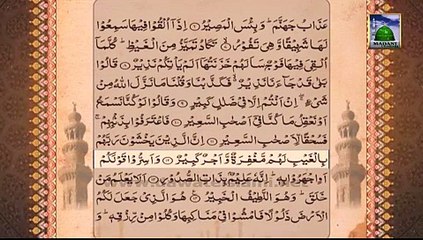 عَذَابُ جَهَنَّمَ ؕ وَبِئْسَ الْمَصِيْرُ ۝ اِذَاۤ اُلْقُوْا فِيْهَا سَمِعُوْا
لَهَا شَهِيْقًا وَّهِىَ تَفُوْرُ ۝ تَكَادُ تَمَيَّزُ مِنَ الْغَيْظِ ؕ كُلَّمَاۤ
اُلْقِىَ فِيْهَا فَوْجٌ سَاَلَهُمْ خَزَنَتُهَاۤ اَلَمْ يَاْتِكُمْ نَذِيْرٌ ۝ قَالُوْا
بَلٰى قَدْ جَآءَنَا نَذِيْرٌ ۙ فَكَذَّبْنَا وَقُلْنَا مَا نَزَّلَ اللّٰهُ مِنْ
شَىْءٍ ۚ اِنْ اَنْتُمْ اِلَّا فِىْ ضَلٰلٍ كَبِيْرٍ ۝ وَقَالُوْا لَوْ كُنَّا نَسْمَعُ
اَوْ نَعْقِلُ مَا كُنَّا فِىْۤ اَصْحٰبِ السَّعِيْرِ ۝ فَاعْتَرَفُوْا بِذَنْۢبِهِمْ ۚ
فَسُحْقًا لِّاَصْحٰبِ السَّعِيْرِ ۝ اِنَّ الَّذِيْنَ يَخْشَوْنَ رَبَّهُمْ
بِالْغَيْبِ لَهُمْ مَّغْفِرَةٌ وَّاَجْرٌ كَبِيْرٌ ۝ وَاَسِرُّوْا قَوْلَكُمْ
اَوِ اجْهَرُوْا بِهٖ ؕ اِنَّهٗ عَلِيْمٌۢ بِذَاتِ الصُّدُوْرِ ۝ اَلَا يَعْلَمُ مَنْ
خَلَقَ ؕ وَهُوَ اللَّطِيْفُ الْخَبِيْرُ ۝ هُوَ الَّذِىْ جَعَلَ لَكُمُ
الْاَرْضَ ذَلُوْلًا فَامْشُوْا فِىْ مَنَاكِبِهَا وَكُلُوْا مِنْ رِّزْقِهٖ ؕ وَ